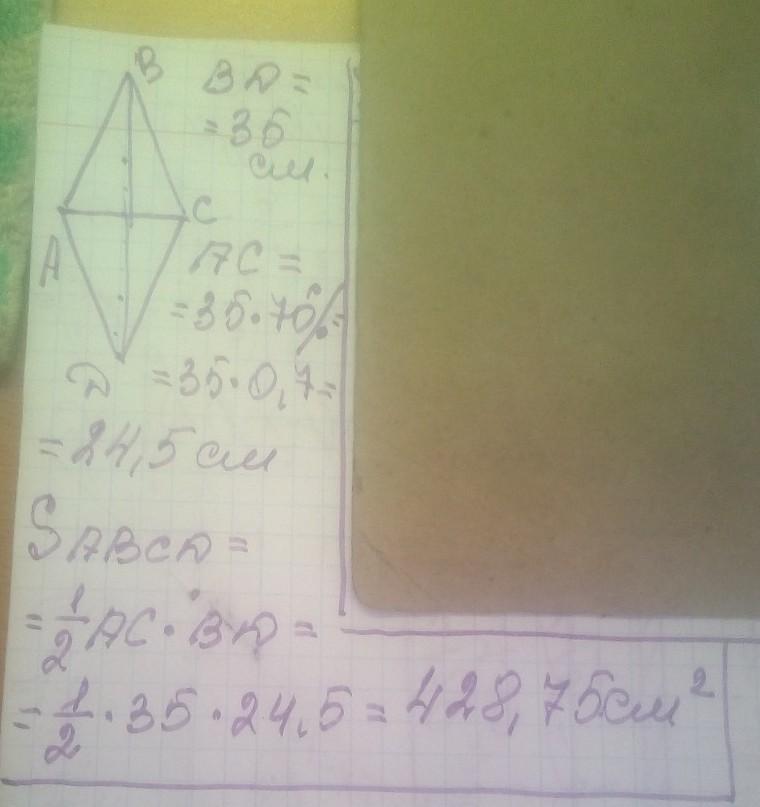 B
BD =
= 35
см.
A
C
AC =
= 35 · 70% =
D
= 35 · 0,7 =
= 24,5 см
SABCD =
= 1/2 AC · BD =
= 1/2 · 35 · 24,5 = 428,75 см²